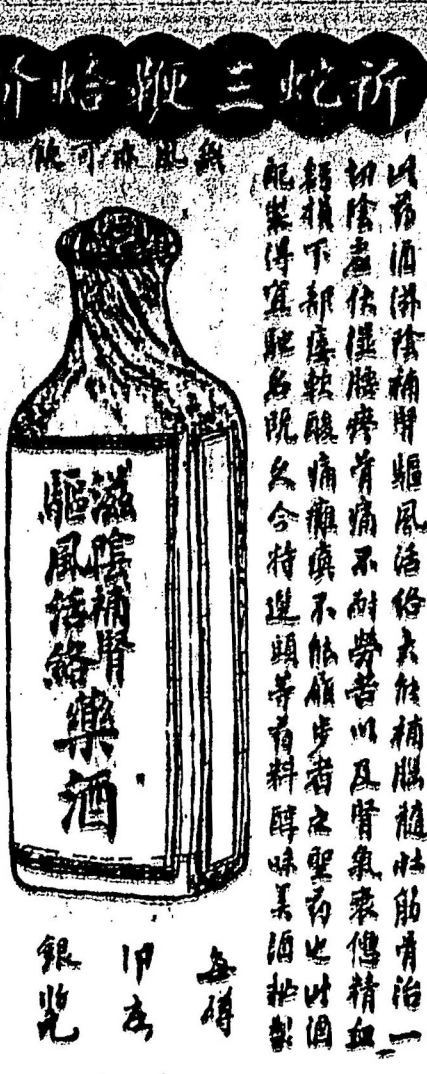 祈蛇三鞭蛤
無風亦可飲
此葯酒滋陰補腎驅風活絡大能補腦髓壯筋骨治一
切陰虛伏濕腰疼骨痛不耐勞苦以及腎氣衰憊精血
虧損下部痿軟酸痛癱瘓不能履步者之聖葯也此酒
配製得宜馳名既久今特選頭等葯料醇味美酒秘製
滋陰補腎
驅風活絡
藥酒
每樽
銀